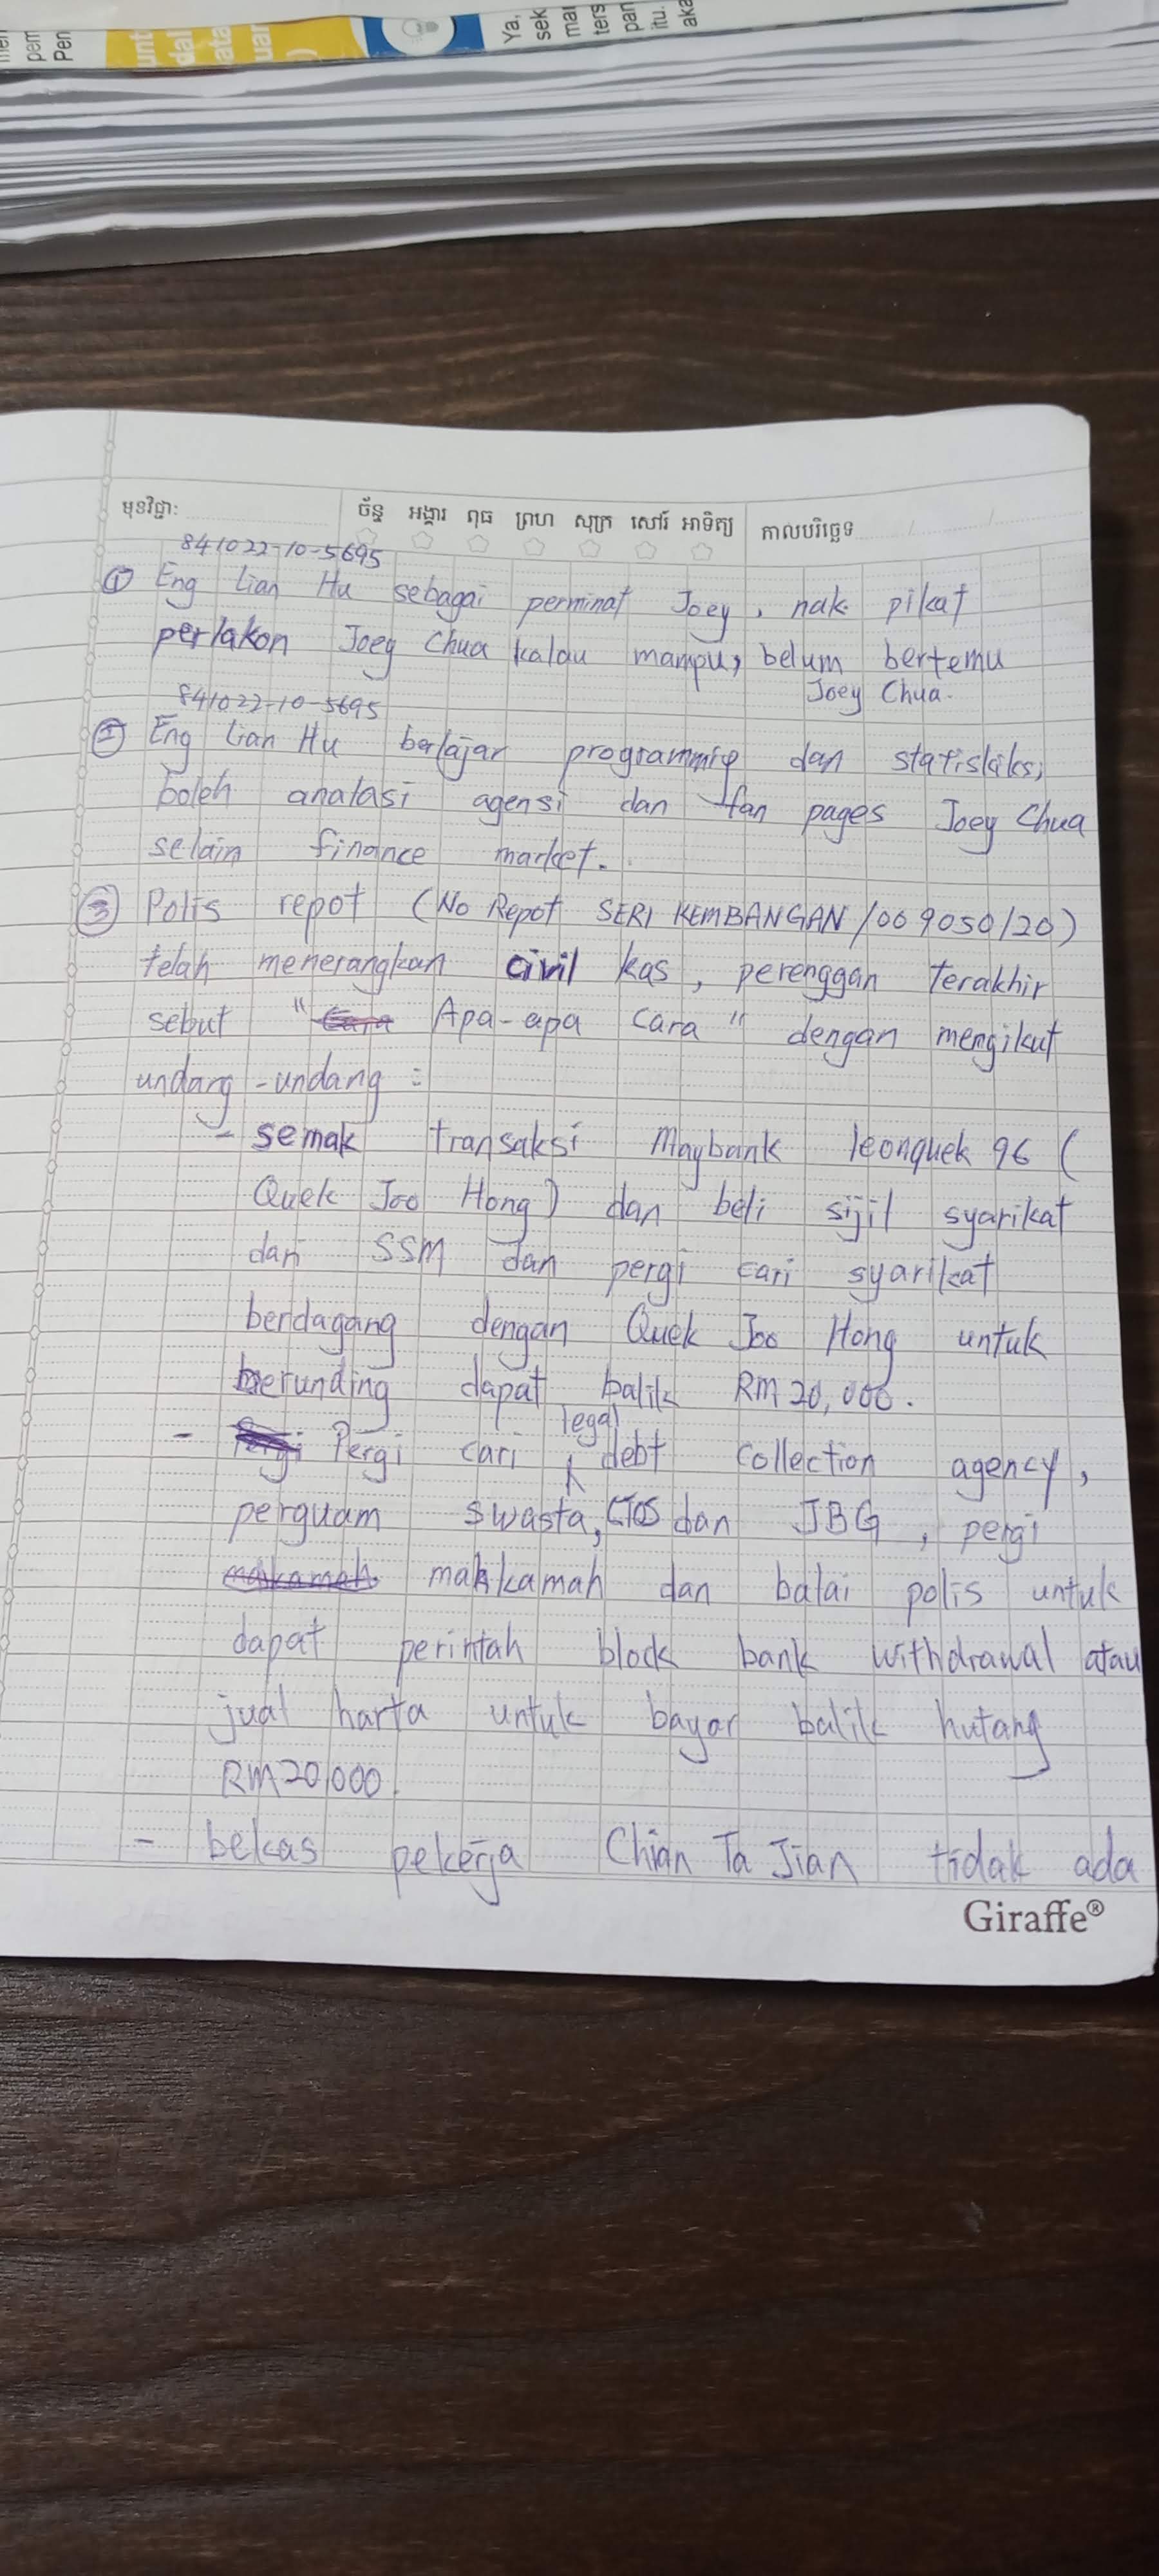 pem
Pen
unt
dal
ata
uar
)
Ya,
sek
mar
ters
pan
itu.
aka
មុខវិជ្ជា: ច័ន្ទ អង្គារ ពុធ ព្រហ សុក្រ សៅរ៍ អាទិត្យ កាលបរិច្ឆេទ / /
841022-10-5695
① Eng Lian Hu sebagai perminat Joey, nak pikat
perlakon Joey Chua kalau mampu, belum bertemu
Joey Chua.
841022-10-5695
② Eng Lian Hu berlajar programmig dan statisliks,
boleh analasi agensi dan fan pages Joey Chua
selain finance market.
③ Polis repot (No Repot SERI KEMBANGAN/009050/20)
telah menerangkan civil kas, perenggan terakhir
sebut " Apa-apa cara" dengan mengikut
undang-undang :
- semak transaksi Maybank leonquek96 (
Quek Joo Hong) dan beli sijil syarikat
dari SSM dan pergi cari syarikat
berdagang dengan Quek Joo Hong untuk
berunding dapat balik RM20,000.
legal
- Pergi cari debt collection agency,
perguam swasta, CTOS dan JBG, pergi
mahkamah dan balai polis untuk
dapat perintah block bank withdrawal atau
jual harta untuk bayar balik hutang
RM20,000.
- bekas pekerja Chian Ta Jian tidak ada
Giraffe®